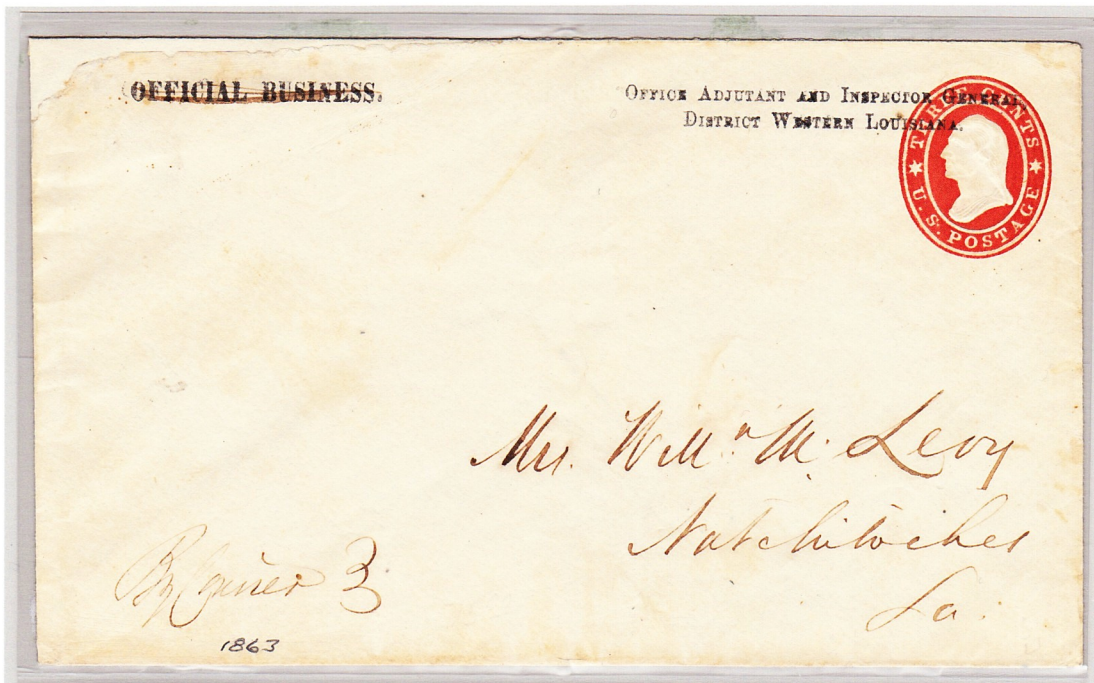 OFFICIAL BUSINESS.
OFFICE ADJUTANT AND INSPECTOR GENERAL,
DISTRICT WESTERN LOUISIANA.
THREE CENTS
U. S. POSTAGE
Mrs. Will.m M. Levy
Natchitoches
La.
By Courier 3
1863